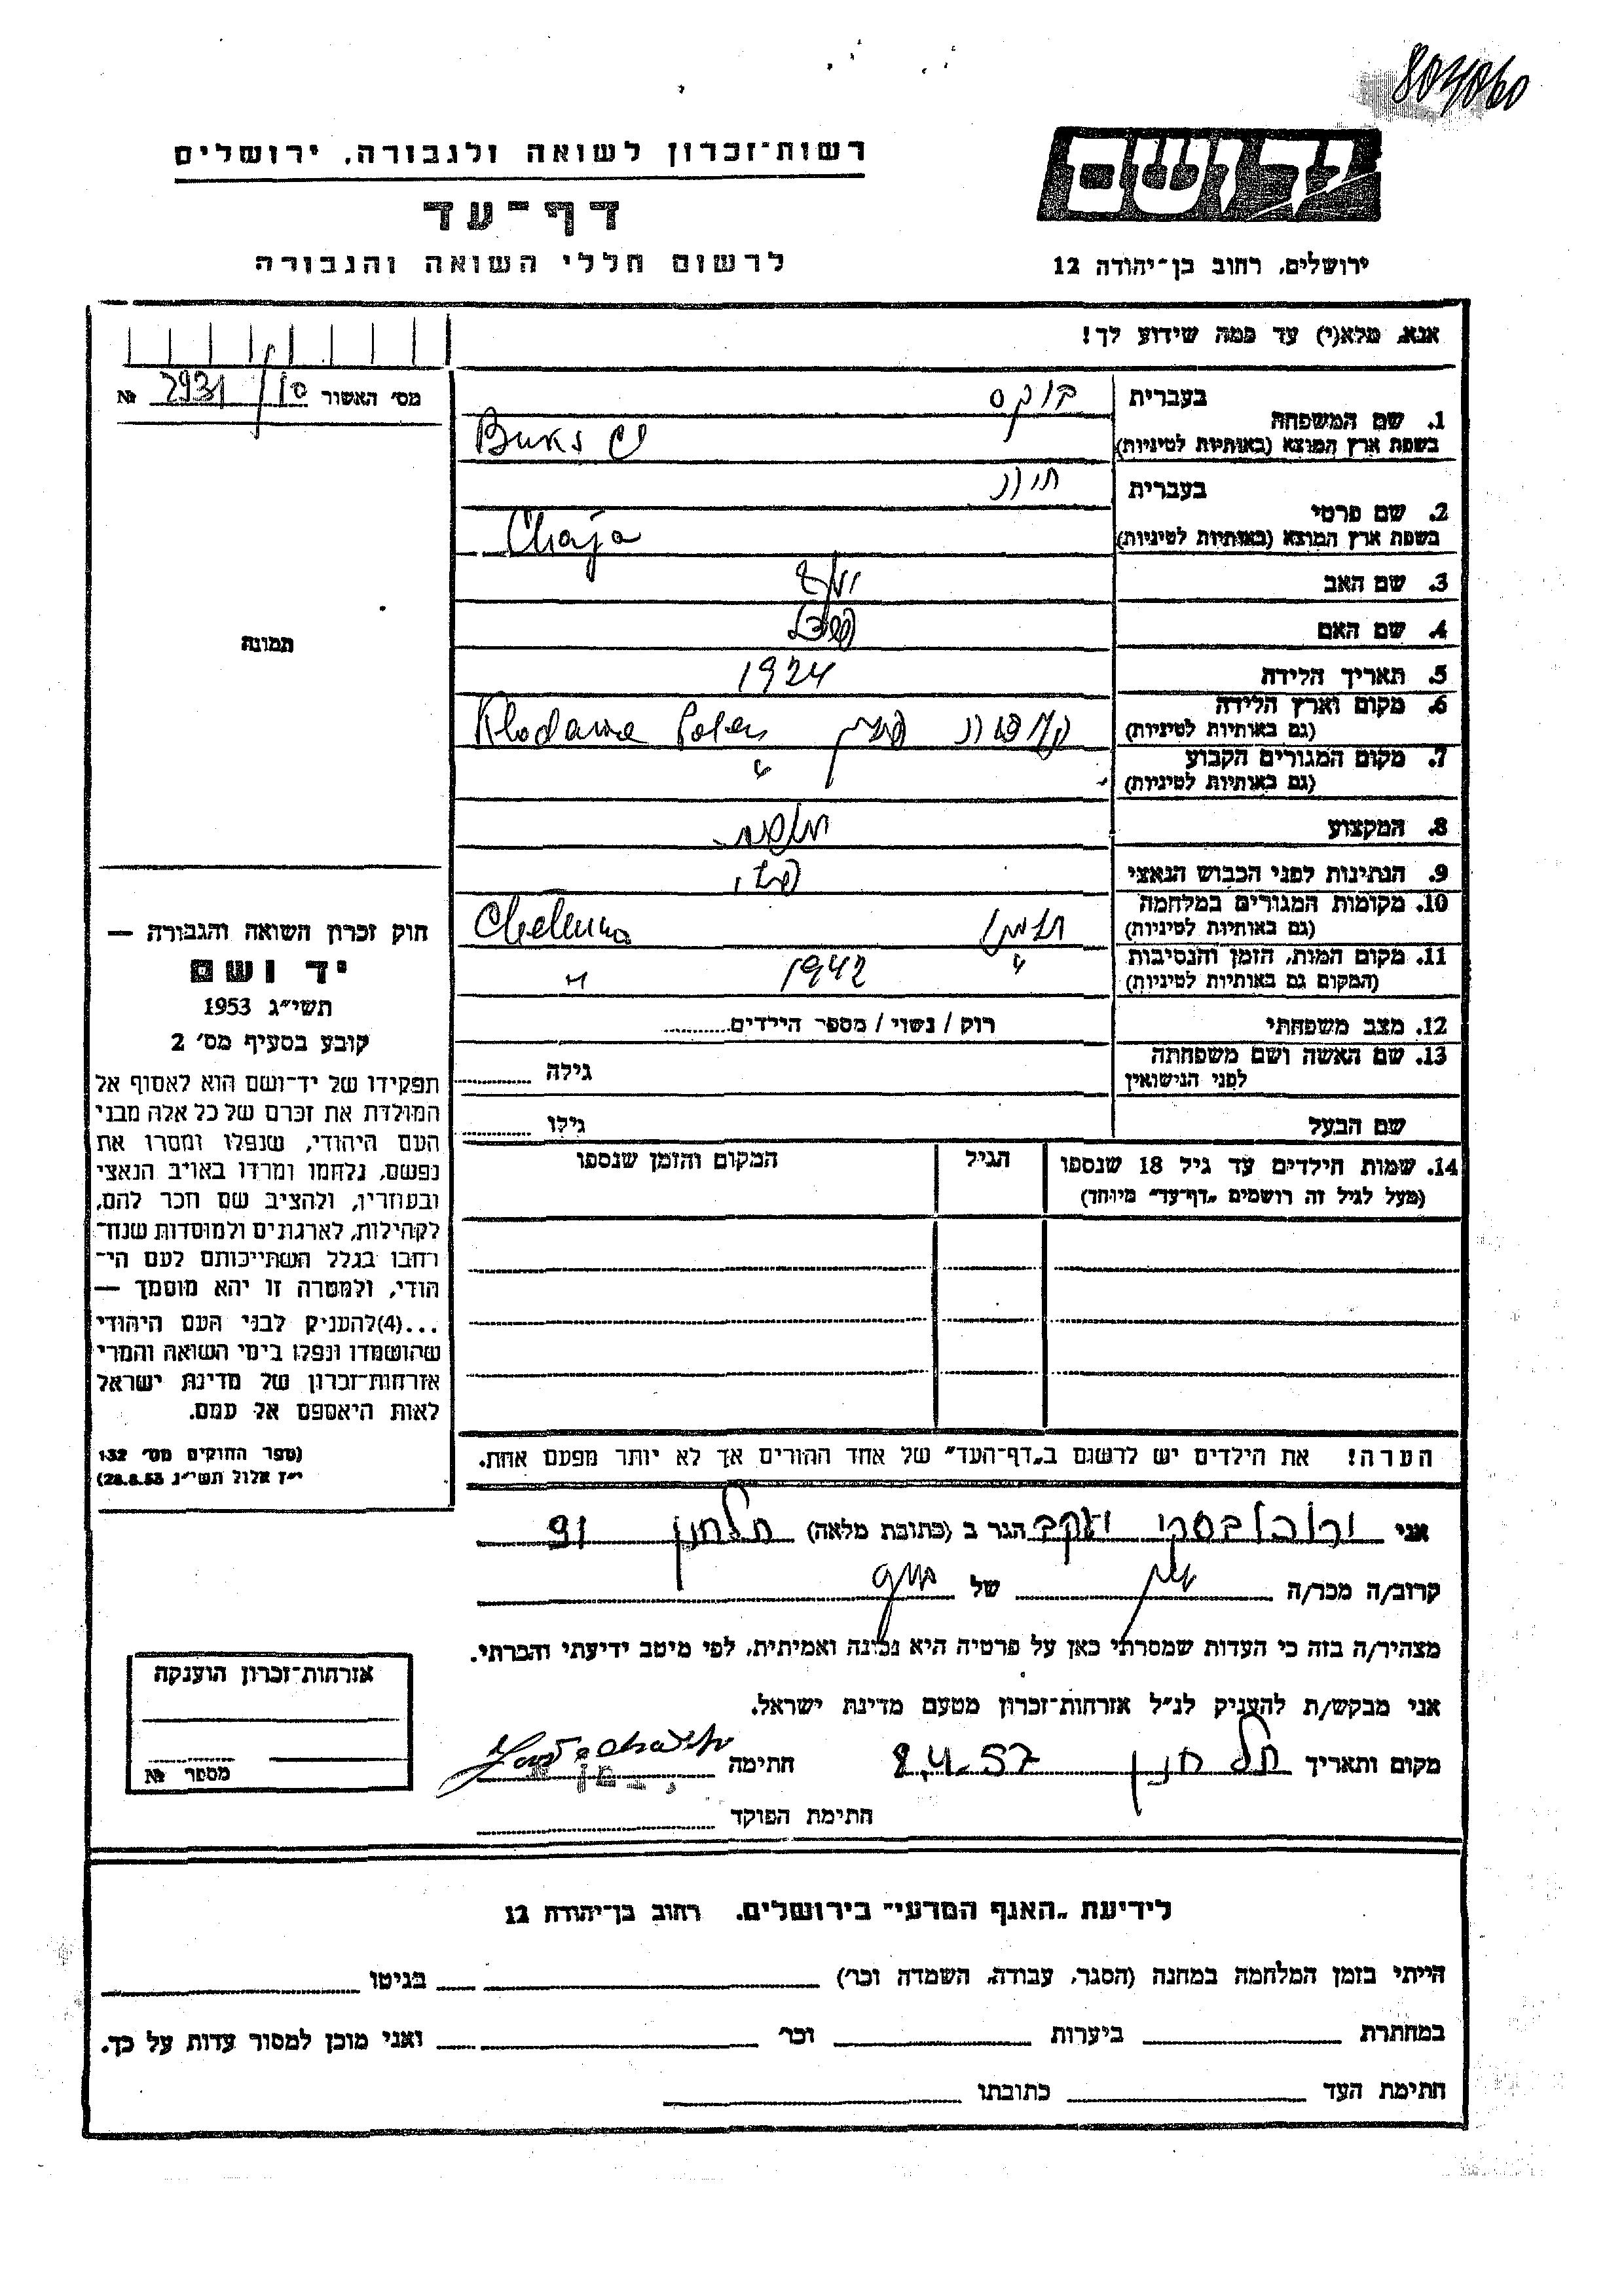 רשות־זכרון לשואה ולגבורה, ירושלים
דף־עד
לרשום חללי השואה והגבורה
ירושלים, רחוב בן־יהודה 12
אנא, מלא(י) עד כמה שידוע לך!
מס׳ האשור 10/2931 №
תמונה
חוק זכרון השואה והגבורה —
יד ושם
תשי״ג 1953
קובע בסעיף מס׳ 2
תפקידו של יד־ושם הוא לאסוף אל
המולדת את זכרם של כל אלה מבני
העם היהודי, שנפלו ומסרו את
נפשם, נלחמו ומרדו באויב הנאצי
ובעוזריו, ולהציב שם וזכר להם,
לקהילות, לארגונים ולמוסדות שנח־
רחבו בגלל השתייכותם לעם הי־
הודי, ולמטרה זו יהא מוסמך —
...(4)להעניק לבני העם היהודי
שהושמדו ונפלו בימי השואה והמרי
אזרחות־זכרון של מדינת ישראל
לאות היאספם אל עמם.
(ספר החוקים מס׳ 132
י״ז אלול תשי״ג 28.8.53)
1. שם המשפחה
בעברית בוקס
בשפת ארץ המוצא (באותיות לטיניות) Buks
2. שם פרטי
בעברית חיה
בשפת ארץ המוצא (באותיות לטיניות) Chaja
3. שם האב
4. שם האם
5. תאריך הלידה 1924
6. מקום וארץ הלידה
(גם באותיות לטיניות) קלודאווה פולין Klodawa Polen
7. מקום המגורים הקבוע
(גם באותיות לטיניות) "
8. המקצוע
9. הנתינות לפני הכבוש הנאצי פולני
10. מקומות המגורים במלחמה
(גם באותיות לטיניות) חלמנו Chelmno
11. מקום המות, הזמן והנסיבות
(המקום גם באותיות לטיניות) " 1942 "
12. מצב משפחתי רוק / נשוי / מספר הילדים
13. שם האשה ושם משפחתה
לפני הנישואין גילה
שם הבעל גילו
14. שמות הילדים עד גיל 18 שנספו הגיל המקום והזמן שנספו
(מעל לגיל זה רושמים „דף־עד״ מיוחד)
הערה! את הילדים יש לרשום ב„דף־העד״ של אחד ההורים אך לא יותר מפעם אחת.
אני יעקב הגר ב (כתובת מלאה) תל חנן 91
קרוב/ה מכר/ה של
מצהיר/ה בזה כי העדות שמסרתי כאן על פרטיה היא נכונה ואמיתית, לפי מיטב ידיעתי והכרתי.
אני מבקש/ת להעניק לנ״ל אזרחות־זכרון מטעם מדינת ישראל.
מקום ותאריך תל חנן 8.4.57 חתימה
חתימת הפוקד
אזרחות־זכרון הוענקה
מספר №
לידיעת „האגף המדעי״ בירושלים, רחוב בן־יהודה 12
הייתי בזמן המלחמה במחנה (הסגר, עבודה, השמדה וכר׳) בגיטו
במחתרת ביערות וכר׳ ואני מוכן למסור עדות על כך.
חתימת העד כתובתו